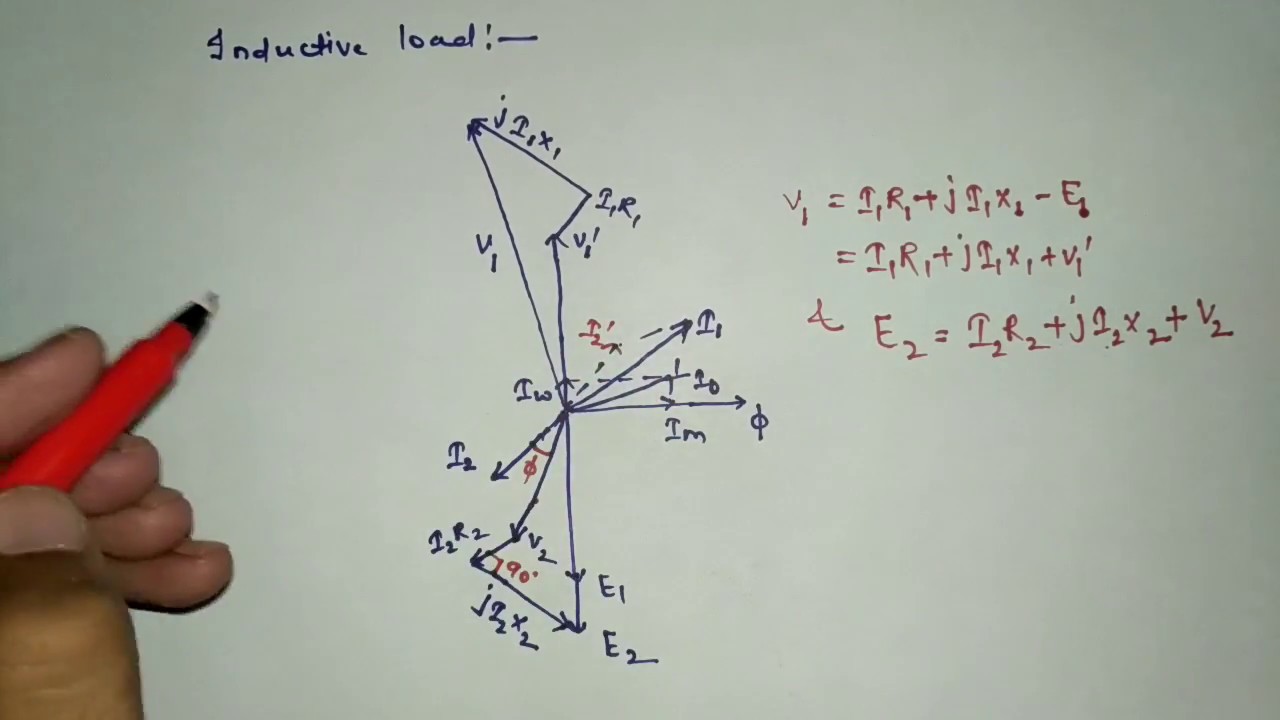 Inductive load:—
jI₁x₁
I₁R₁
V₁
V₁'
I₂'
I₁
I₀
Iw
Im
ϕ
I₂
ϕ
I₂R₂
V₂
90°
jI₂x₂
E₁
E₂
V₁ = I₁R₁+jI₁x₁ - E₁
= I₁R₁+jI₁x₁+V₁'
& E₂ = I₂R₂+jI₂x₂+V₂